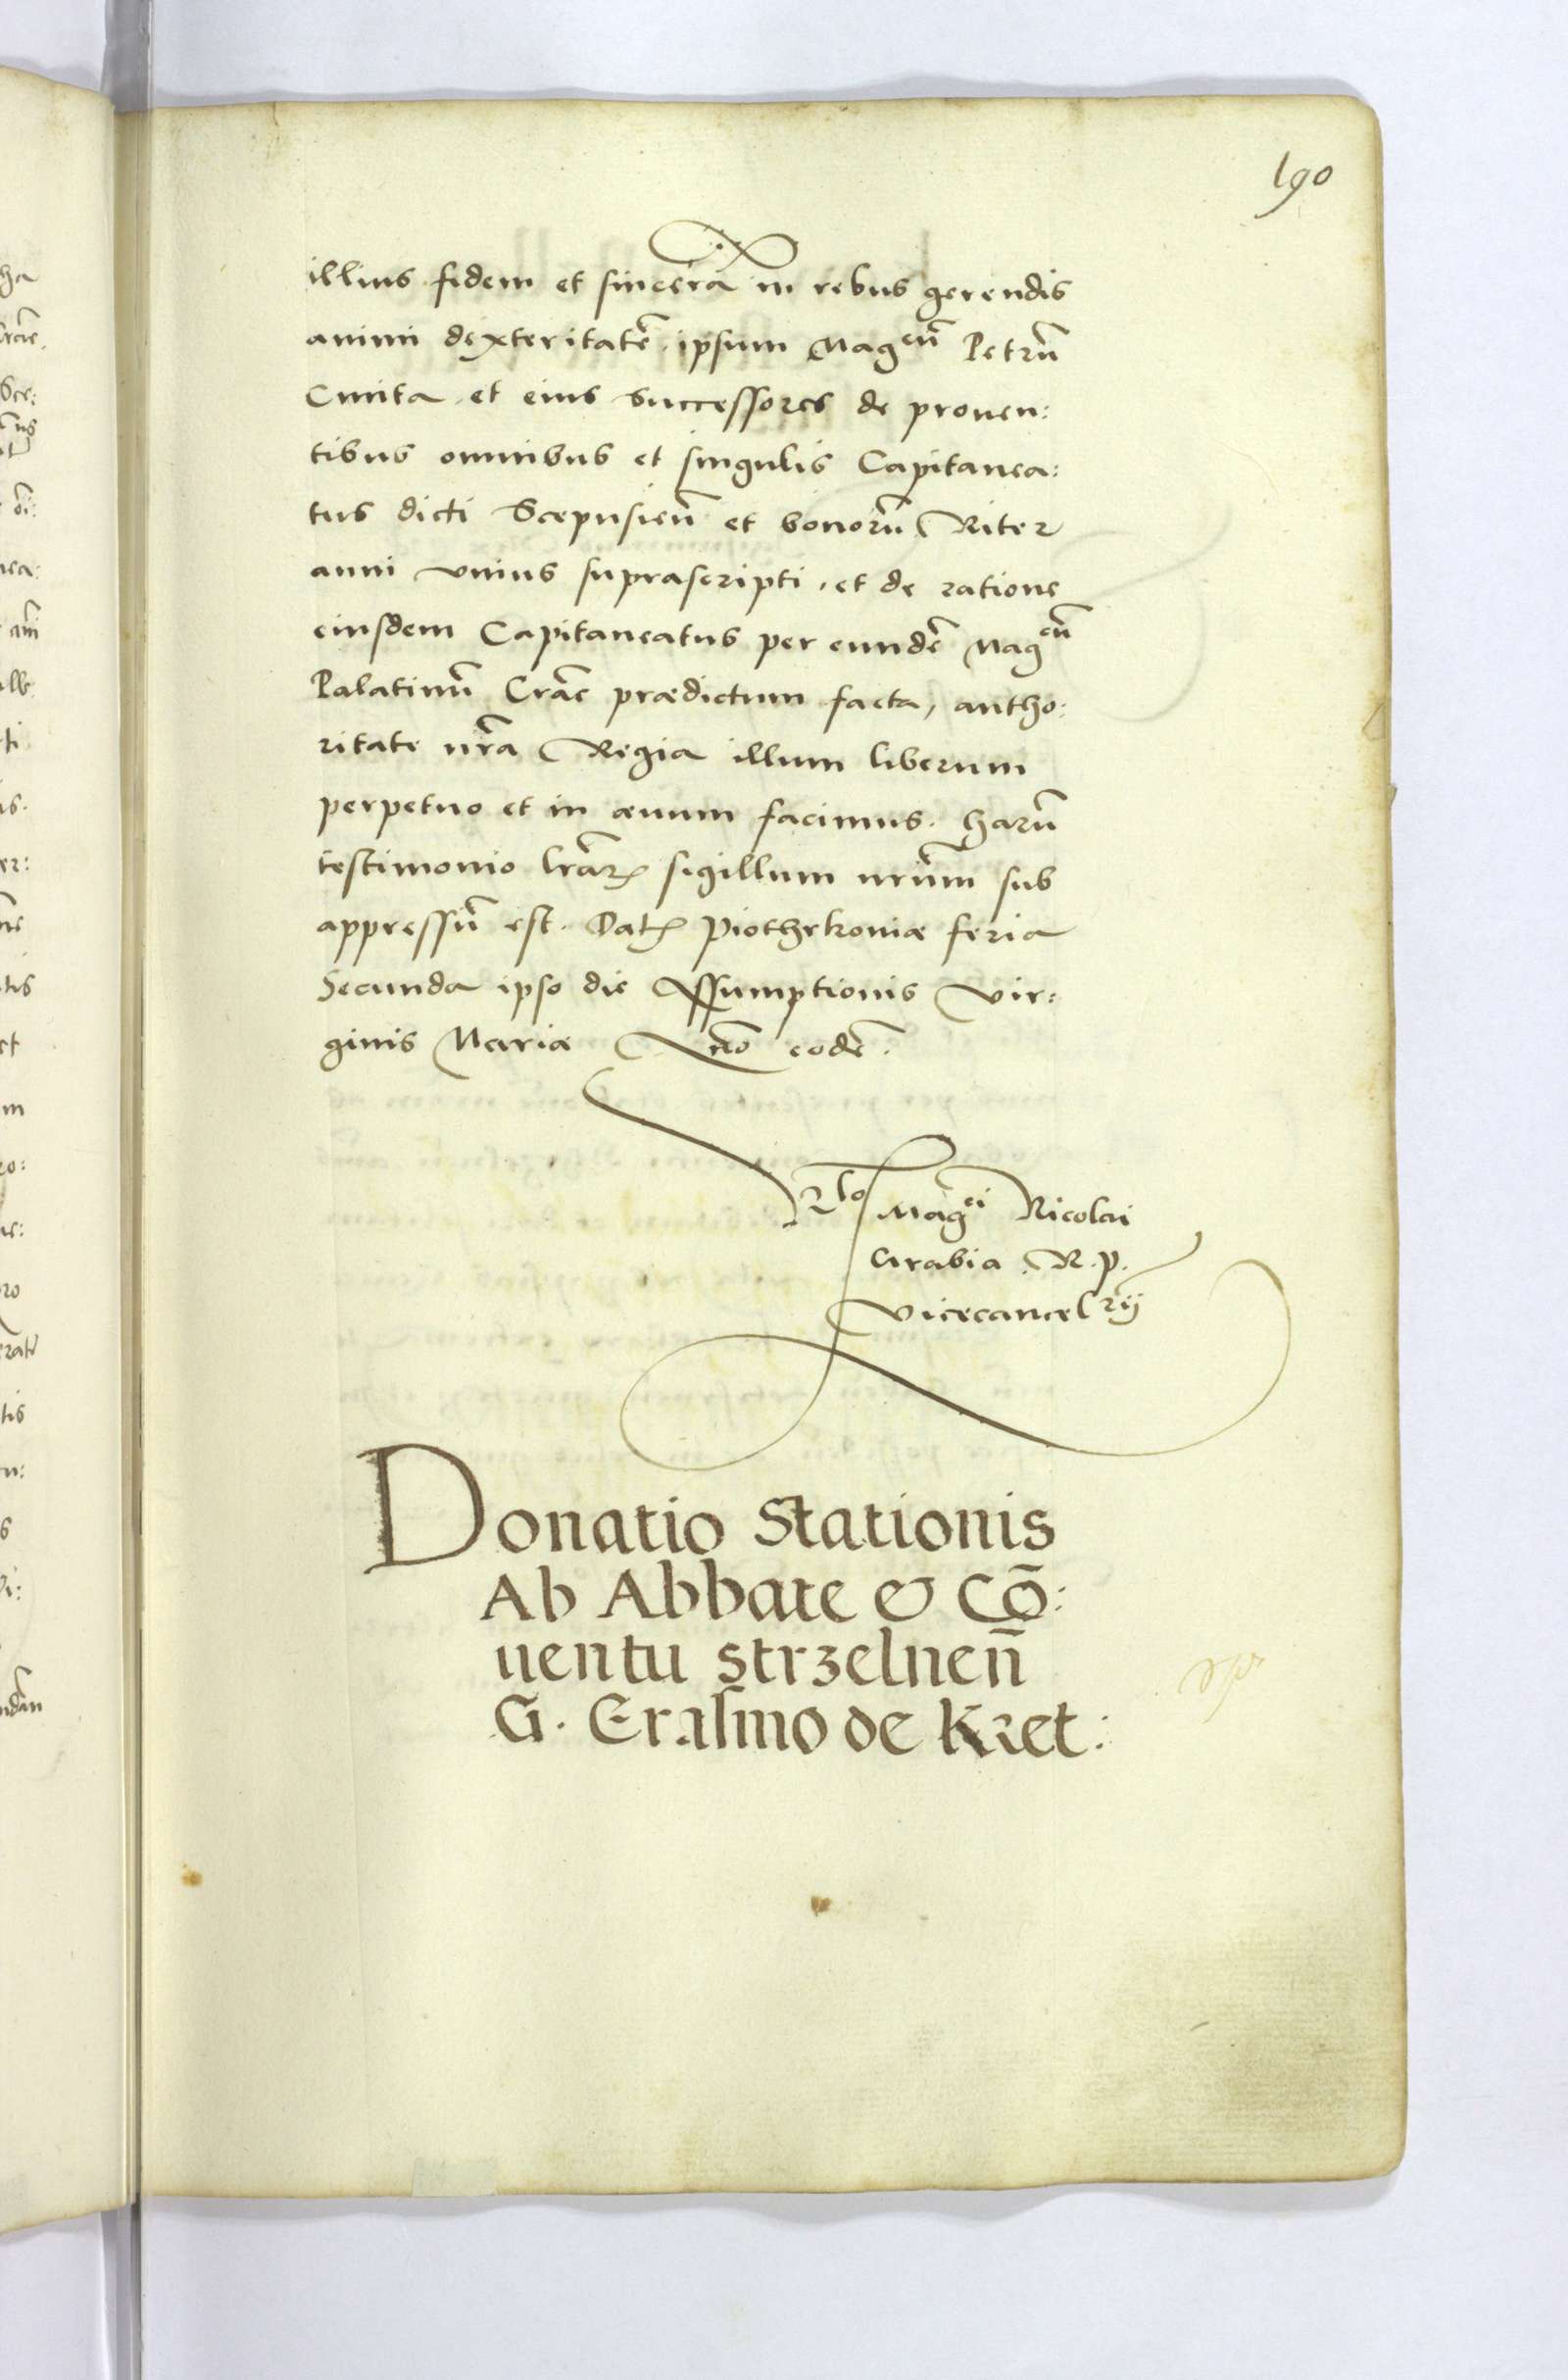 190
illius fidem et sincerā in rebus gerendis
animi dexteritatē ipsum Magcū Petrū
Cmita et eius successores de prouen:
tibus omnibus et singulis Capitanea:
tus dicti Scepusieñ et bonorū Riter
anni vnius suprascripti, et de ratione
eiusdem Capitaneatus per eundē Magcū
Palatinū Crāc prædictum facta, autho:
ritate nrā Regia illum liberum
perpetuo et in æuum facimus. Harū
testimonio lrāꝝ sigillum nrūm sub
appressū est. Datꝝ Piothrkouiæ feria
Secunda ipso die Assumptionis Vir:
ginis Mariæ Anō eodē.
Rlo Magci Nicolai
Grabia R. p.
Vicecancelrij
Donatio Stationis
Ab Abbate & Cō:
uentu strzelneñ
G. Erasmo de Kret: